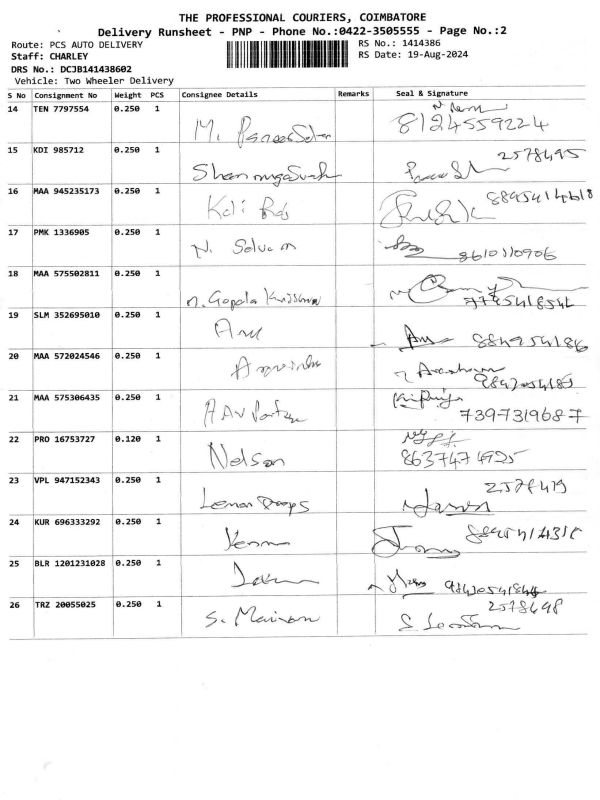 THE PROFESSIONAL COURIERS, COIMBATORE
Delivery Runsheet - PNP - Phone No.:0422-3505555 - Page No.:2
Route: PCS AUTO DELIVERY
RS No.: 1414386
Staff: CHARLEY
RS Date: 19-Aug-2024
DRS No.: DCJB141438602
Vehicle: Two Wheeler Delivery
S No Consignment No Weight PCS Consignee Details Remarks Seal & Signature
14 TEN 7797554 0.250 1 M. 8124559224
15 KDI 985712 0.250 1 2578495
16 MAA 945235173 0.250 1 Kali Raj
17 PMK 1336905 0.250 1 N. Selvam 8610110906
18 MAA 575502811 0.250 1 n. Gopala Krishna
19 SLM 352695010 0.250 1 884954186
20 MAA 572024546 0.250 1
21 MAA 575306435 0.250 1 7397319687
22 PRO 16753727 0.120 1 Nelson 8637474925
23 VPL 947152343 0.250 1 Lemon Drops 2578419
24 KUR 696333292 0.250 1
25 BLR 1201231028 0.250 1
26 TRZ 20055025 0.250 1 S. 2578498